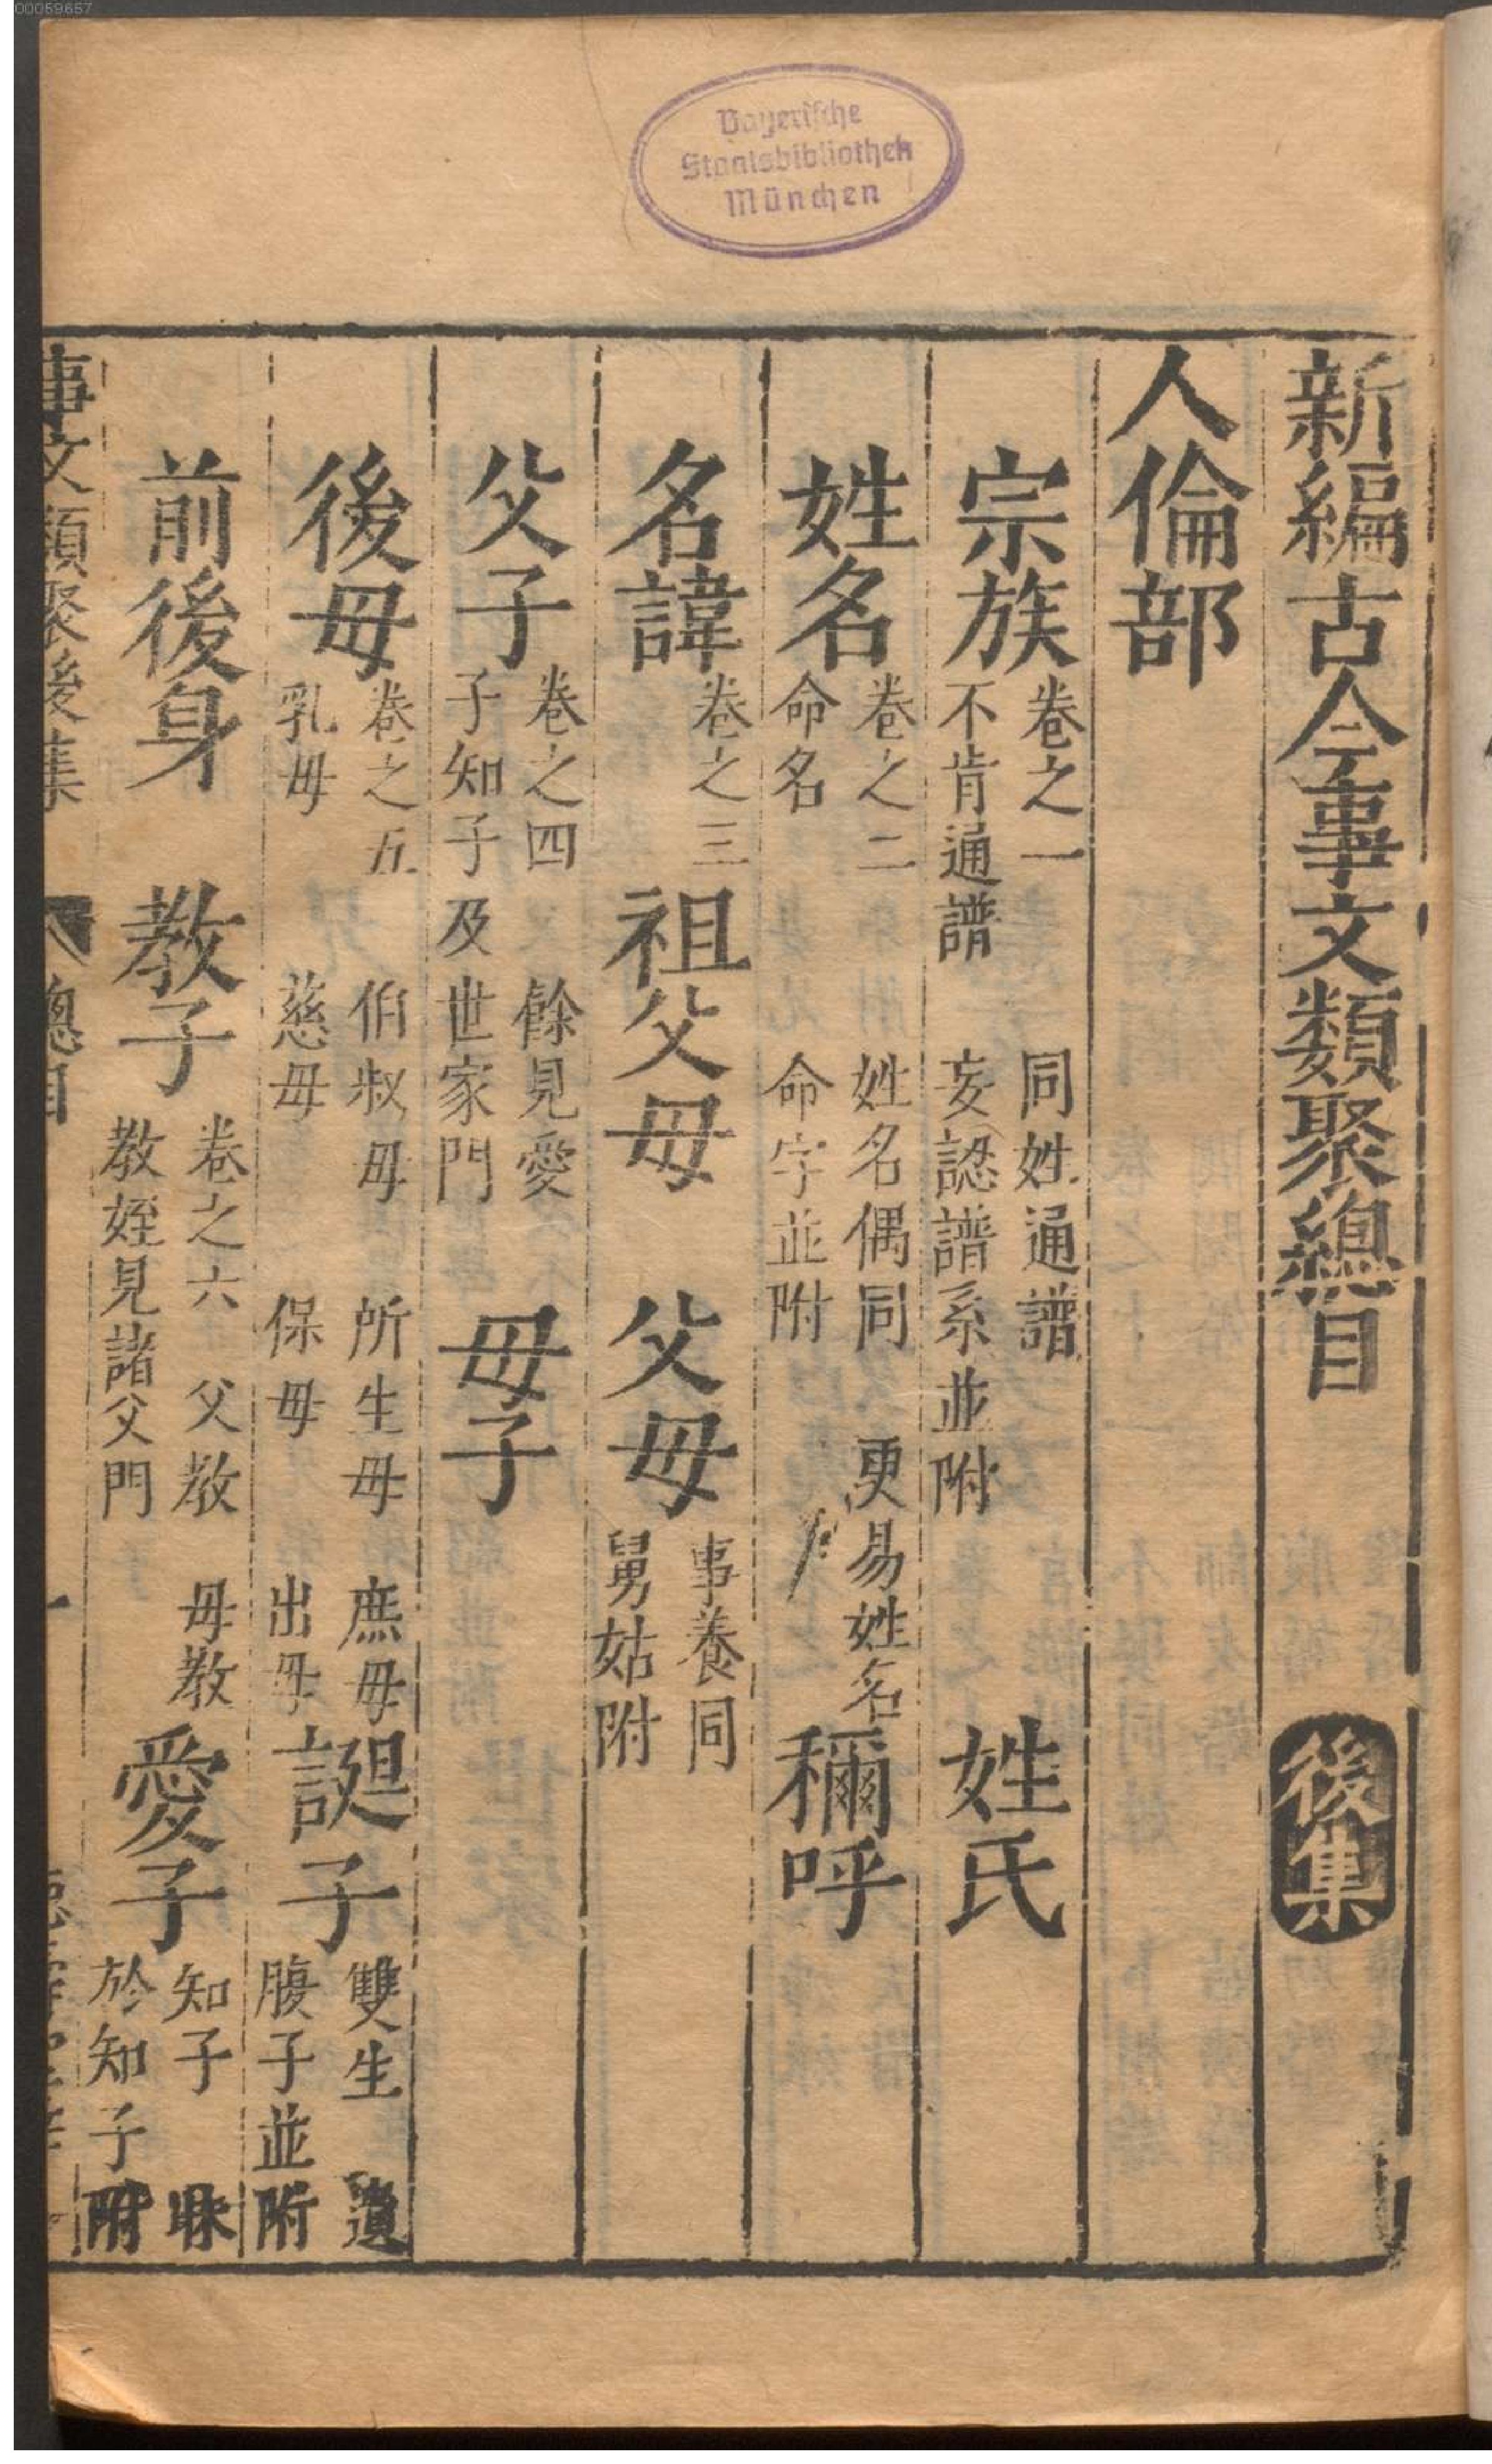 00059657
Bayerische
Staatsbibliothek
München
新編古今事文類聚總目 後集
人倫部
宗族 卷之一 同姓通譜 不肯通譜 妄認譜系並附 姓氏
姓名 卷之二 姓名偶同 更易姓名 命名 命字並附 稱呼
名諱 卷之三 祖父母 父母 事養同 舅姑附
父子 卷之四 餘見愛 子知子及世家門 母子
後母 卷之五 伯叔母 所生母 庶母 乳母 慈母 保母 出母 誕子 雙生 遺 腹子並附
前後身 教子 卷之六 父教 母教 教姪見諸父門 愛子 知子 昧 於知子附
事文類聚後集 總目 一